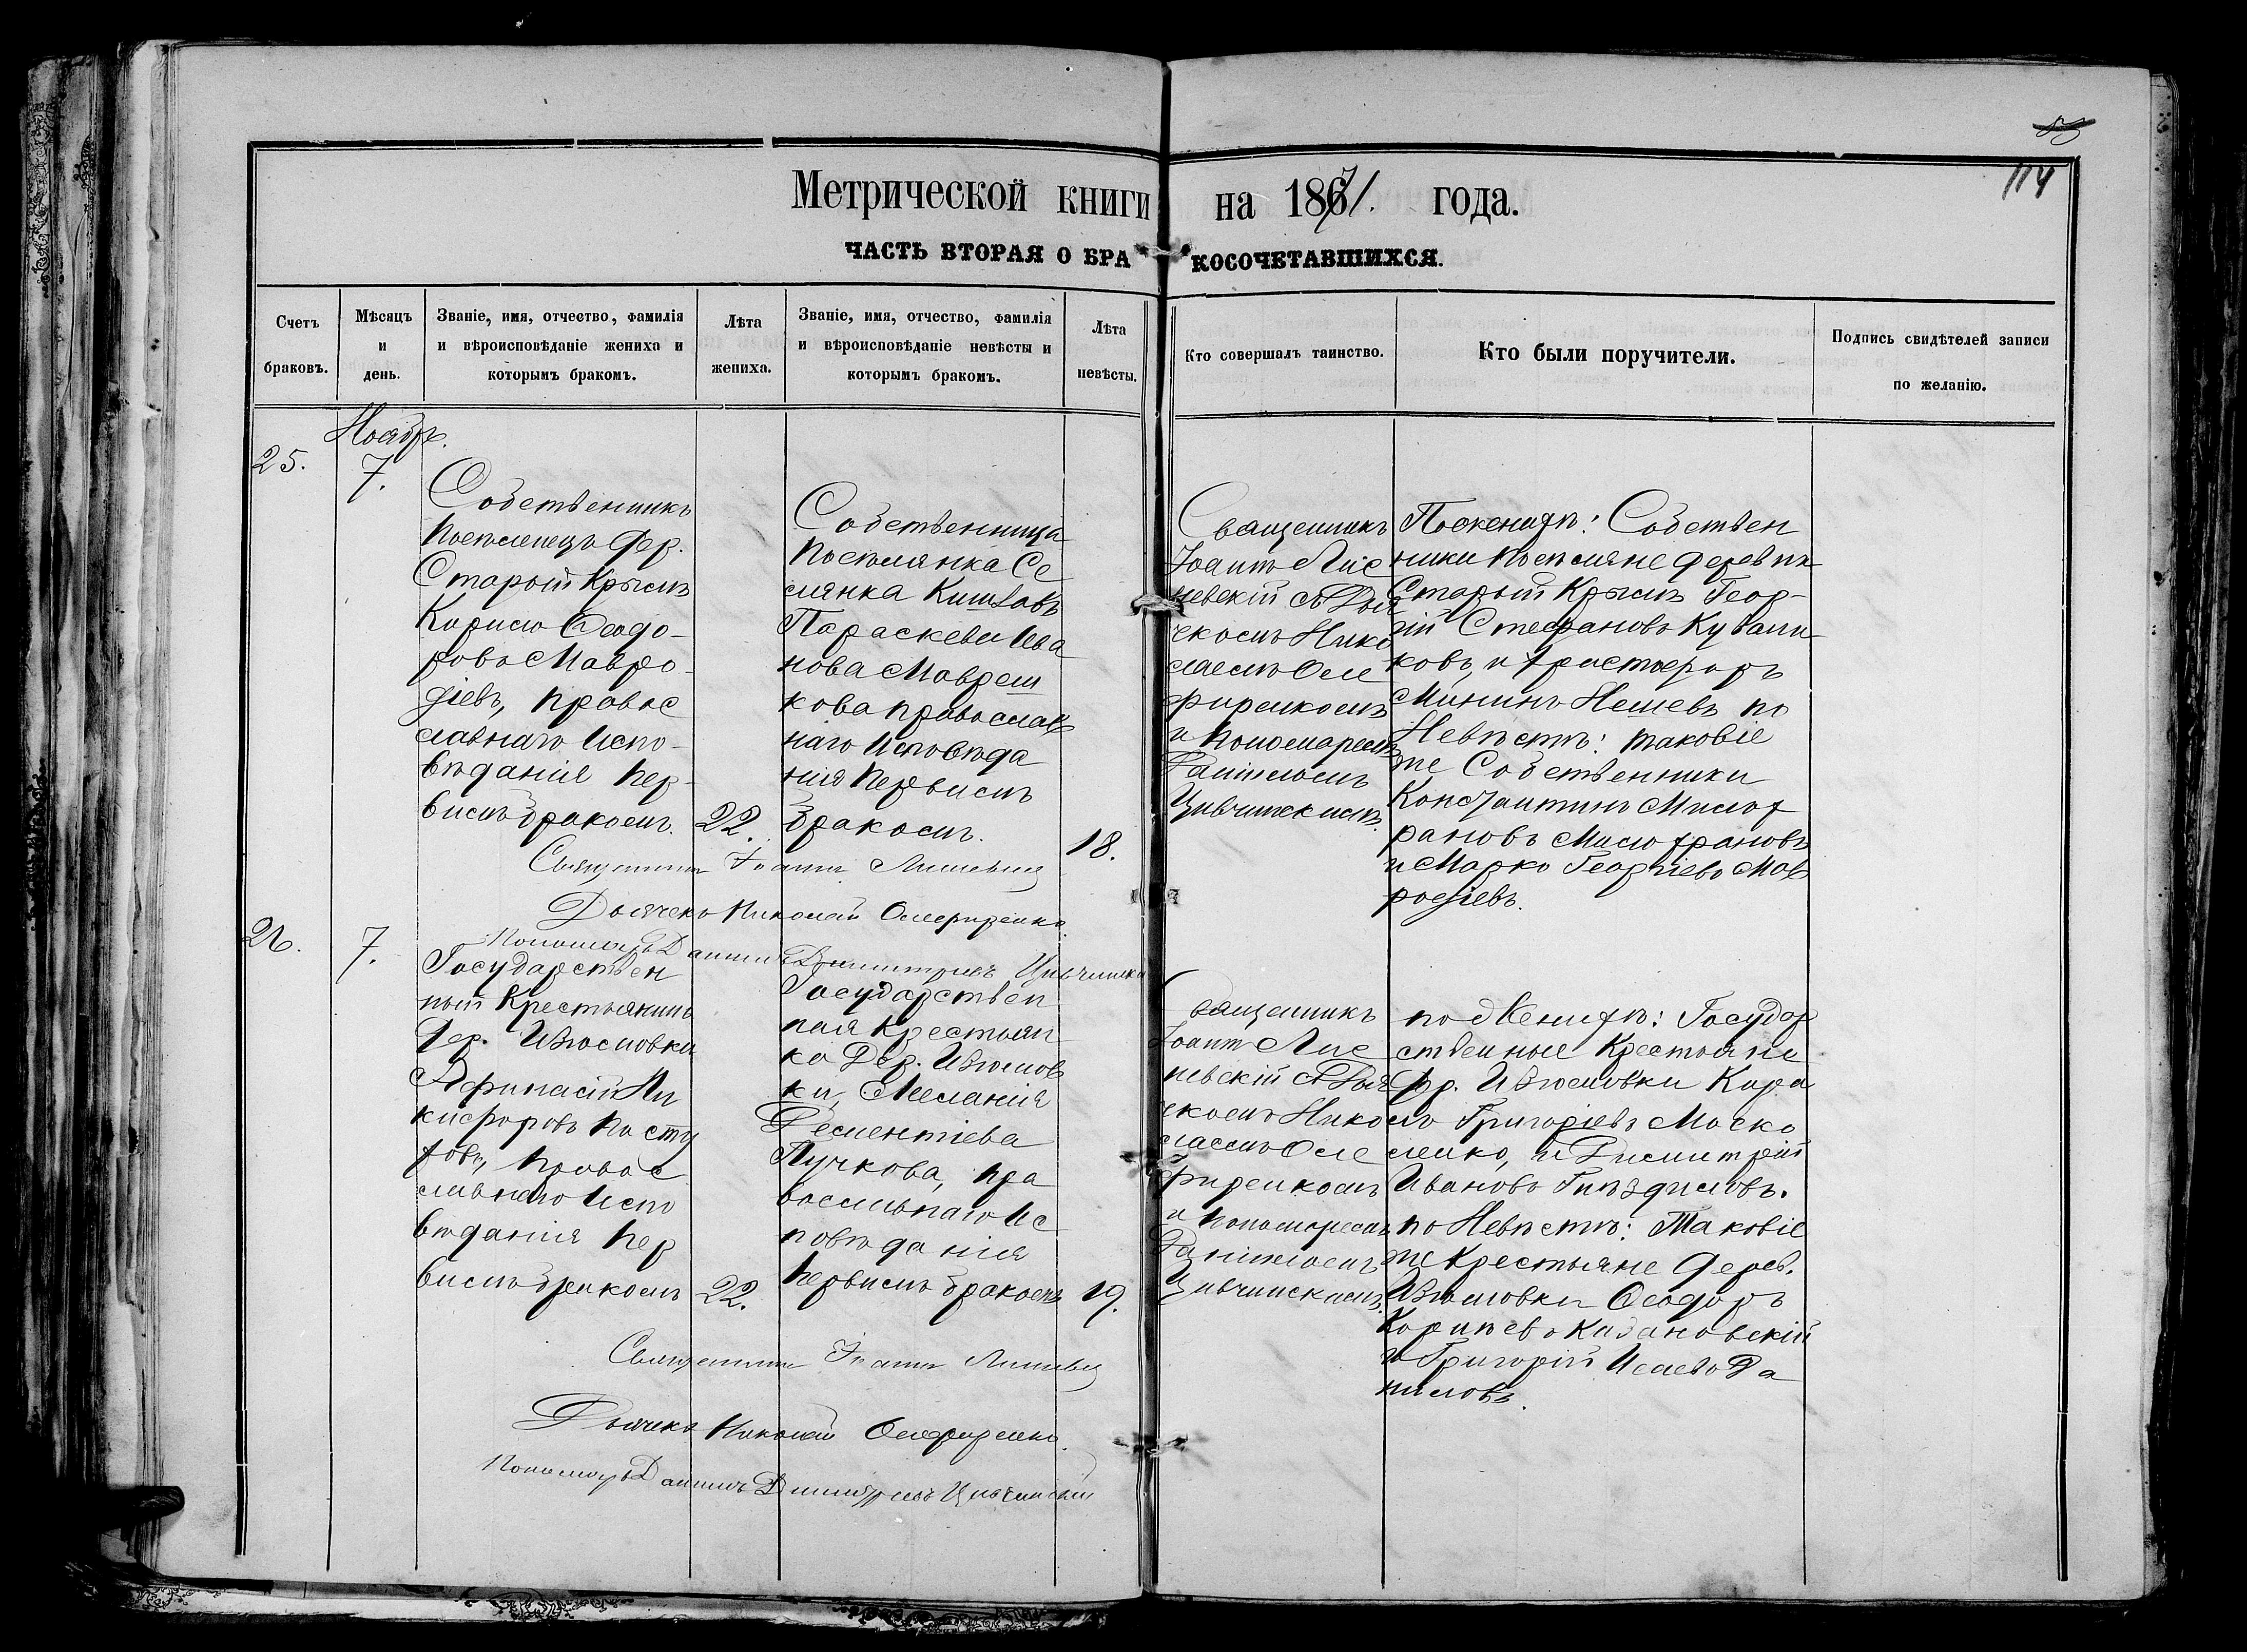 114
Метрической книги на 1871. года.
ЧАСТЬ ВТОРАЯ О БРАКОСОЧЕТАВШИХСЯ.
Счетъ браковъ.
Мѣсяцъ и день.
Званіе, имя, отчество, фамилія и вѣроисповѣданіе жениха и которымъ бракомъ.
Лѣта жениха.
Званіе, имя, отчество, фамилія и вѣроисповѣданіе невѣсты и которымъ бракомъ.
Лѣта невѣсты.
Кто совершалъ таинство.
Кто были поручители.
Подпись свидѣтелей записи по желанію.
Ноябрь.
25.
7.
Собственникъ
поселенецъ дер.
Старый Крымъ
Кирило Ѳеодо-
ровъ Мавро-
діевъ, правос
славнаго испо-
вѣданія пер-
вымъ бракомъ.
22.
Собственница
поселянка Се
лянка
Параскева Ива
нова Мавреш
кова православ
наго исповѣда
нія первымъ
бракомъ.
18.
Священникъ
Іоаннъ Лис
невскій съ Дья
чкомъ Нико
лаемъ Оле
фиренкомъ
и пономаремъ
Даніиломъ
Цивчинскимъ.
По женихѣ: Собствен
ники поселяне деревни
Старый Крымъ Геор-
гій Стефановъ Кували-
ковъ, и Христофоръ
Мининъ Нешевъ по
Невѣстѣ: таковіе
же Собственники
Константинъ Милох
рановъ Милохрановъ
и Марко Георгіевъ Мав
родіевъ.
Священникъ Іоаннъ Лисневскій
Дьячекъ Николай Олефиренко.
Пономарь Даніилъ Димитріевъ Цивчинскій
26.
7.
Государствен
ный Крестьянинъ
Дер. Изюмовки
Афанасій Ни
кифоровъ Пасту
ховъ, правос
лавнаго испо
вѣданія пер
вымъ бракомъ
22.
Государствен
ная Крестьян
ка Дер. Изюмов
ки, Меланія
Дементіева
Пучкова, пра
вославнаго ис
повѣданія
первымъ бракомъ
19.
Священникъ
Іоаннъ Лис
невскій съ Дья
чкомъ Нико
лаемъ Оле
фиренкомъ
и пономаремъ
Даніиломъ
Цивчинскимъ.
по Женихѣ: Государ
ственные Крестьяне
Др. Изюмовки Кири
лъ Григоріевъ Моско
ленко, и Димитрій
Ивановъ Гнѣздиловъ.
по Невѣстѣ: Таковіе
же Крестьяне дерев.
Изюмовки Ѳеодоръ
Корнѣевъ Кадановскій
и Григорій Исаевъ Да
ниловъ.
Священникъ Іоаннъ Лисневскій
Дьячекъ Николай Олефиренко.
Пономарь Даніилъ Димитріевъ Цивчинскій